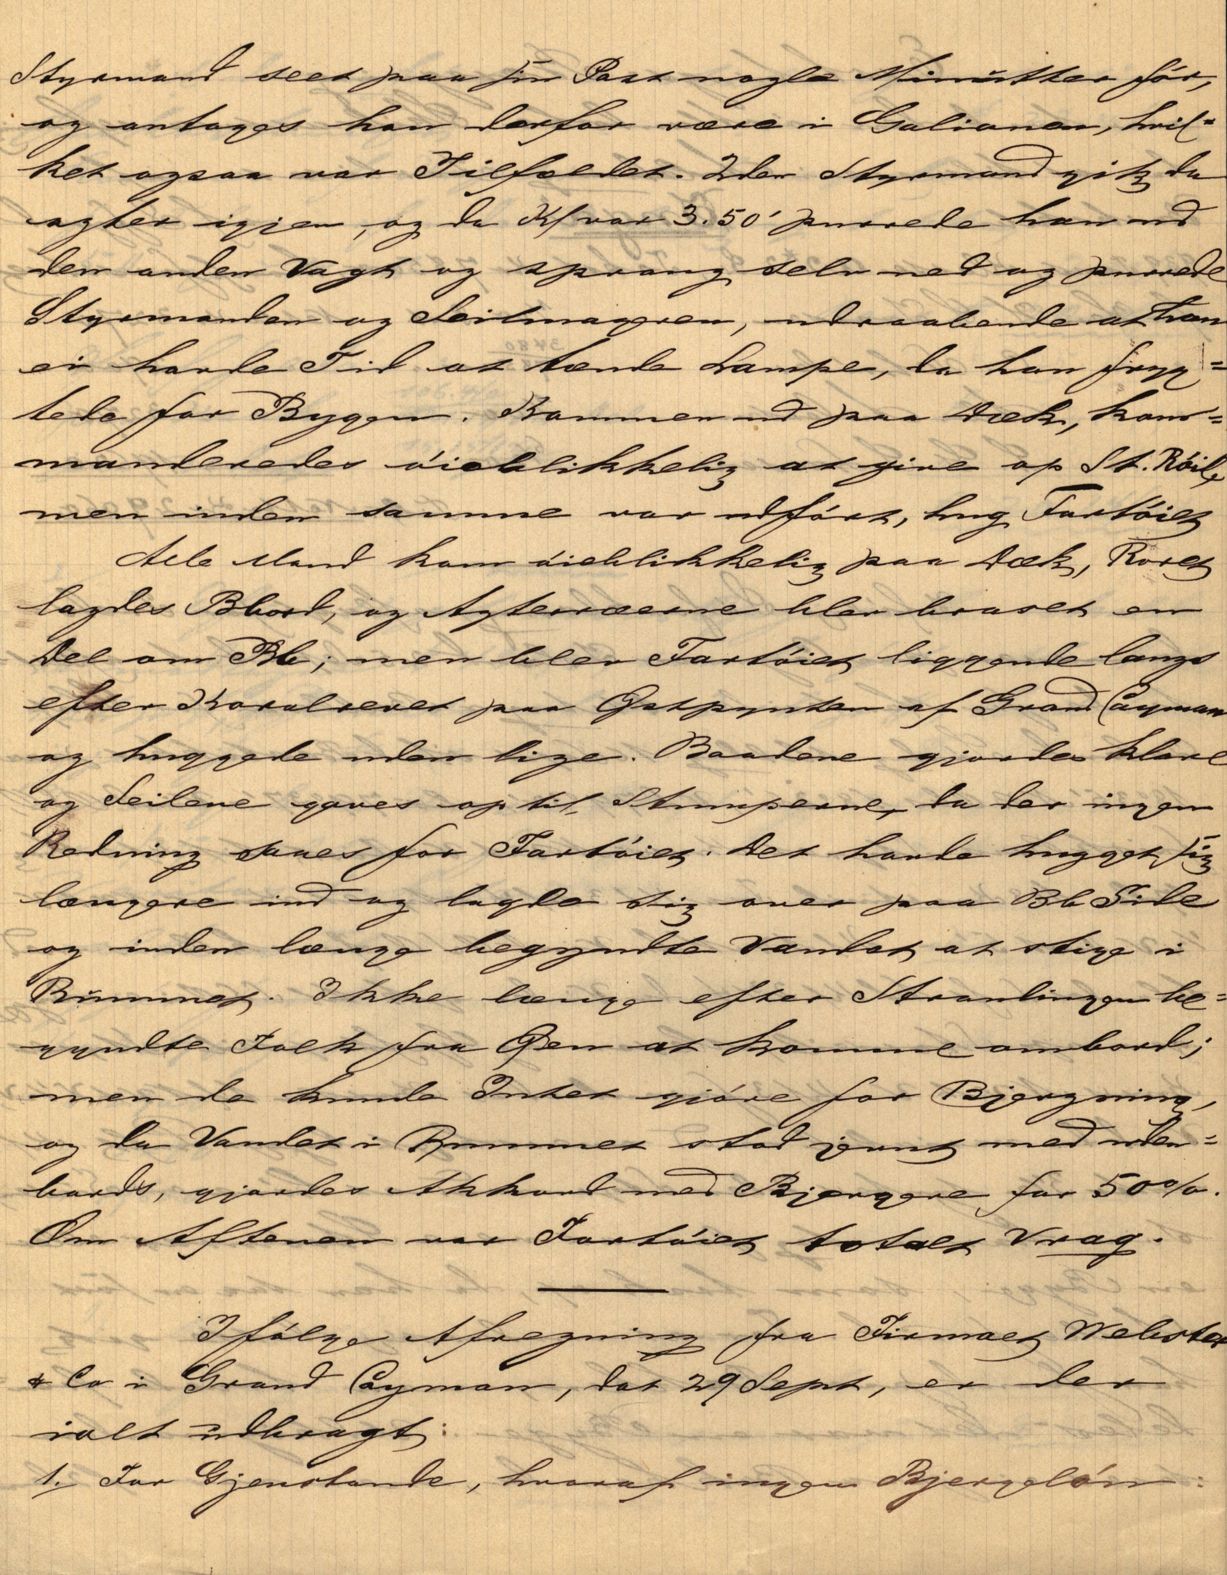 Styrmand seet paa sin Post nogle Minutter før,
og antages han derfor være i Galionen, hvil=
ket ogsaa var Tilfældet. 2den Styrmand gik da
agter igjen, og da Kl var 3.50' purrede han ud
den anden Vagt og sprang selv ned og purrede
Styrmanden og Seilmageren, udraabende at han
ei havde Tid at tænde Lampe, da han fryg=
tede for Bygen. Kommen ud paa Dæk, kom=
manderedes øieblikkelig at give op St. Røil,
men inden samme var udført, hug Fartøiet
Alle Mand kom øieblikkelig paa Dæk, Roret
lagdes Bbord, og Agterræerne blev braset en
Del om Bb; men blev Fartøiet liggende langs
efter Koralrevet paa Østpynten af Grand Cayman
og huggede uden lige. Baadene gjordes klare
og Seilene gaves op til Stumperne, da der ingen
Redning saaes for Fartøiet. Det havde hugget sig
længere ind og lagde sig over paa Bb Side
og inden længe begyndte Vandet at stige i
Rummet. Ikke længe efter Strandingen be=
gyndte Folk fra Øen at komme ombord;
men de kunde Intet gjøre for Bjergning,
og da Vandet i Rummet stod jevnt med uden=
bords, gjordes Akkord med Bjergere for 50%.
Om Aftenen var Fartøiet totalt Vrag.
Ifølge Afregning fra Firmaet Webster
& Co i Grand Cayman, dat 29 Sept, er der
ialt udbragt:
1. For Gjenstande, hvoraf ingen Bjergeløn: